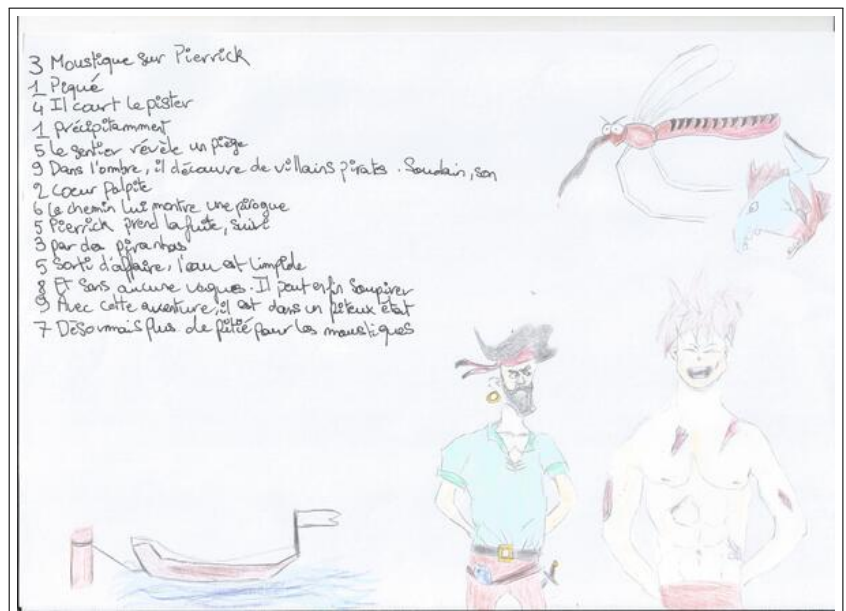 3 Moustique sur Pierrick
1 Piqué
4 Il court le pister
1 Précipitamment
5 le sentier révèle un piège
9 Dans l'ombre, il découvre de villains pirates. Soudain, son
2 coeur palpite
6 Le chemin lui montre une pirogue
5 Pierrick prend la fuite, suivi
3 par des piranhas
5 Sorti d'affaire, l'eau est limpide
8 Et sans aucune vagues. Il peut enfin soupirer
9 Avec cette aventure, il est dans un piteux état
7 Désormais plus de pitié pour les moustiques